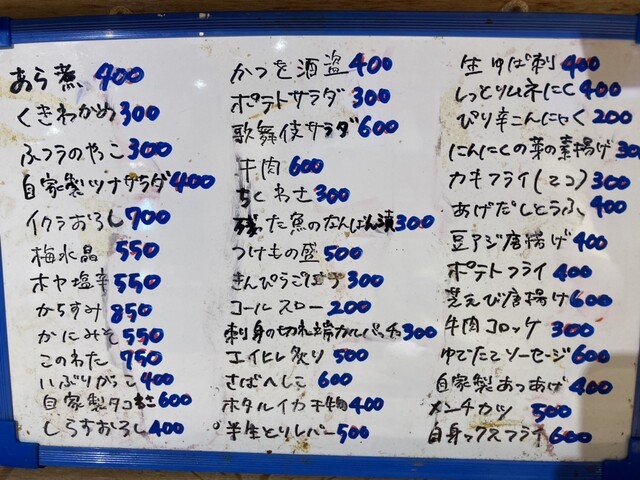 あら煮 400
くきわかめ 300
ふつうのやっこ 300
自家製ツナサラダ 400
イクラおろし 700
梅水晶 550
ホヤ塩辛 550
からすみ 850
かにみそ 550
このわた 750
いぶりがっこ 400
自家製タコわさ 600
しらすおろし 400
かつを酒盗 400
ポテトサラダ 300
歌舞伎サラダ 600
牛肉 600
ちくわさ 300
残った魚のなんばん漬 300
つけもの盛 500
きんぴらごぼう 300
コールスロー 200
刺身の切れ端カルパッチョ 300
エイヒレ炙り 500
さばへしこ 600
ホタルイカ干物 400
半生とりレバー 500
生ゆば刺 400
しっとりムネにく 400
ぴり辛こんにゃく 200
にんにくの芽の素揚げ 300
カキフライ(2コ) 300
あげだしとうふ 400
豆アジ唐揚げ 400
ポテトフライ 400
芝えび唐揚げ 600
牛肉コロッケ 300
ゆでたてソーセージ 600
自家製あつあげ 400
メンチカツ 500
600